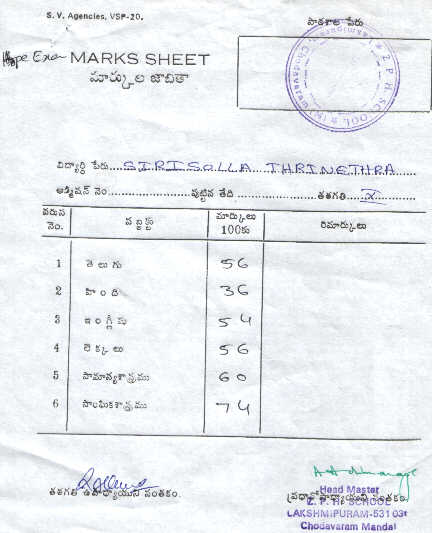 S. V. Agencies, VSP-20.
పాఠశాల పేరు
MARKS SHEET
మార్కుల జాబితా
Z. P. H. SCHOOL
Chodavaram
విద్యార్థి పేరు SIRISOLLA THRINETHRA
అడ్మిషన్ నెం. పుట్టిన తేది తరగతి X
వరుస నెం. సబ్జెక్టు మార్కులు 100కు రిమార్కులు
1 తెలుగు 56
2 హింది 36
3 ఇంగ్లీషు 54
4 లెక్కలు 56
5 సామాన్యశాస్త్రము 60
6 సాంఘికశాస్త్రము 74
తరగతి ఉపాధ్యాయుని సంతకం. ప్రధానోపాధ్యాయుని సంతకం.
Head Master
Z. P. H. SCHOOL
LAKSHMIPURAM-531 031
Chodavaram Mandal